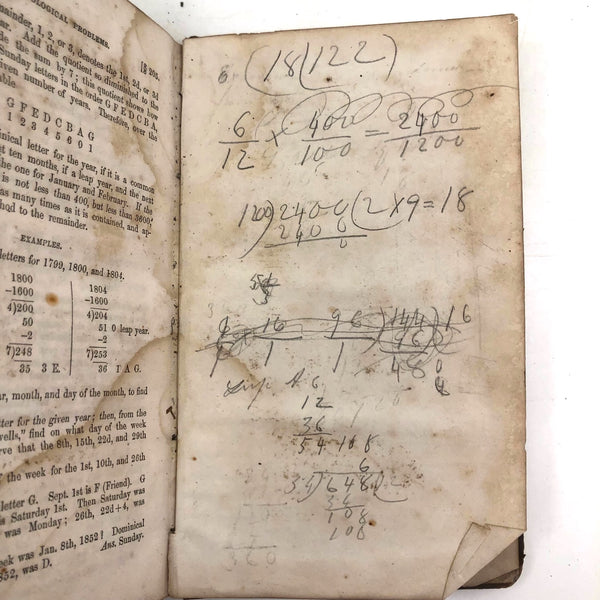 OLOGICAL PROBLEMS. [§ 205.
mainder, 1, 2, or 3, denotes the 1st, 2d, or 3d
ar. Add the quotient so diminished to the
de the sum by 7; this quotient shows how
Sunday letters in the order G F E D C B A,
given number of years. Therefore, over the
ble
G F E D C B A G
1 2 3 4 5 6 0 1
inical letter for the year, if it is a common
st ten months, if a leap year, and the next
the one for January and February. If the
is not less than 400, but less than 3600,
as many times as it is contained, and ap-
hod to the remainder.
EXAMPLES.
letters for 1799, 1800, and 1804.
1800 1804
−1600 −1600
4)200 4)204
50 51 0 leap year.
−2 −2
7)248 7)253
35 3 E. 36 1 A G.
ar, month, and day of the month, to find
tter for the given year; then, from the
wells," find on what day of the week
rve that the 8th, 15th, 22d, and 29th
f the week for the 1st, 10th, and 26th
letter G. Sept. 1st is F (Friend). G
s Saturday 1st. Then Saturday was
was Monday; 26th, 22d+4, was
eek was Jan. 8th, 1852? Dominical
852, was D. Ans. Sunday.
6 (18(122)
6 × 400 = 2400
12 100 1200
1200)2400(2×9=18
2400
0
16 96 144) 16
1 1 96
480
6
12
36
54 108
6
34)648
34
108
108
320